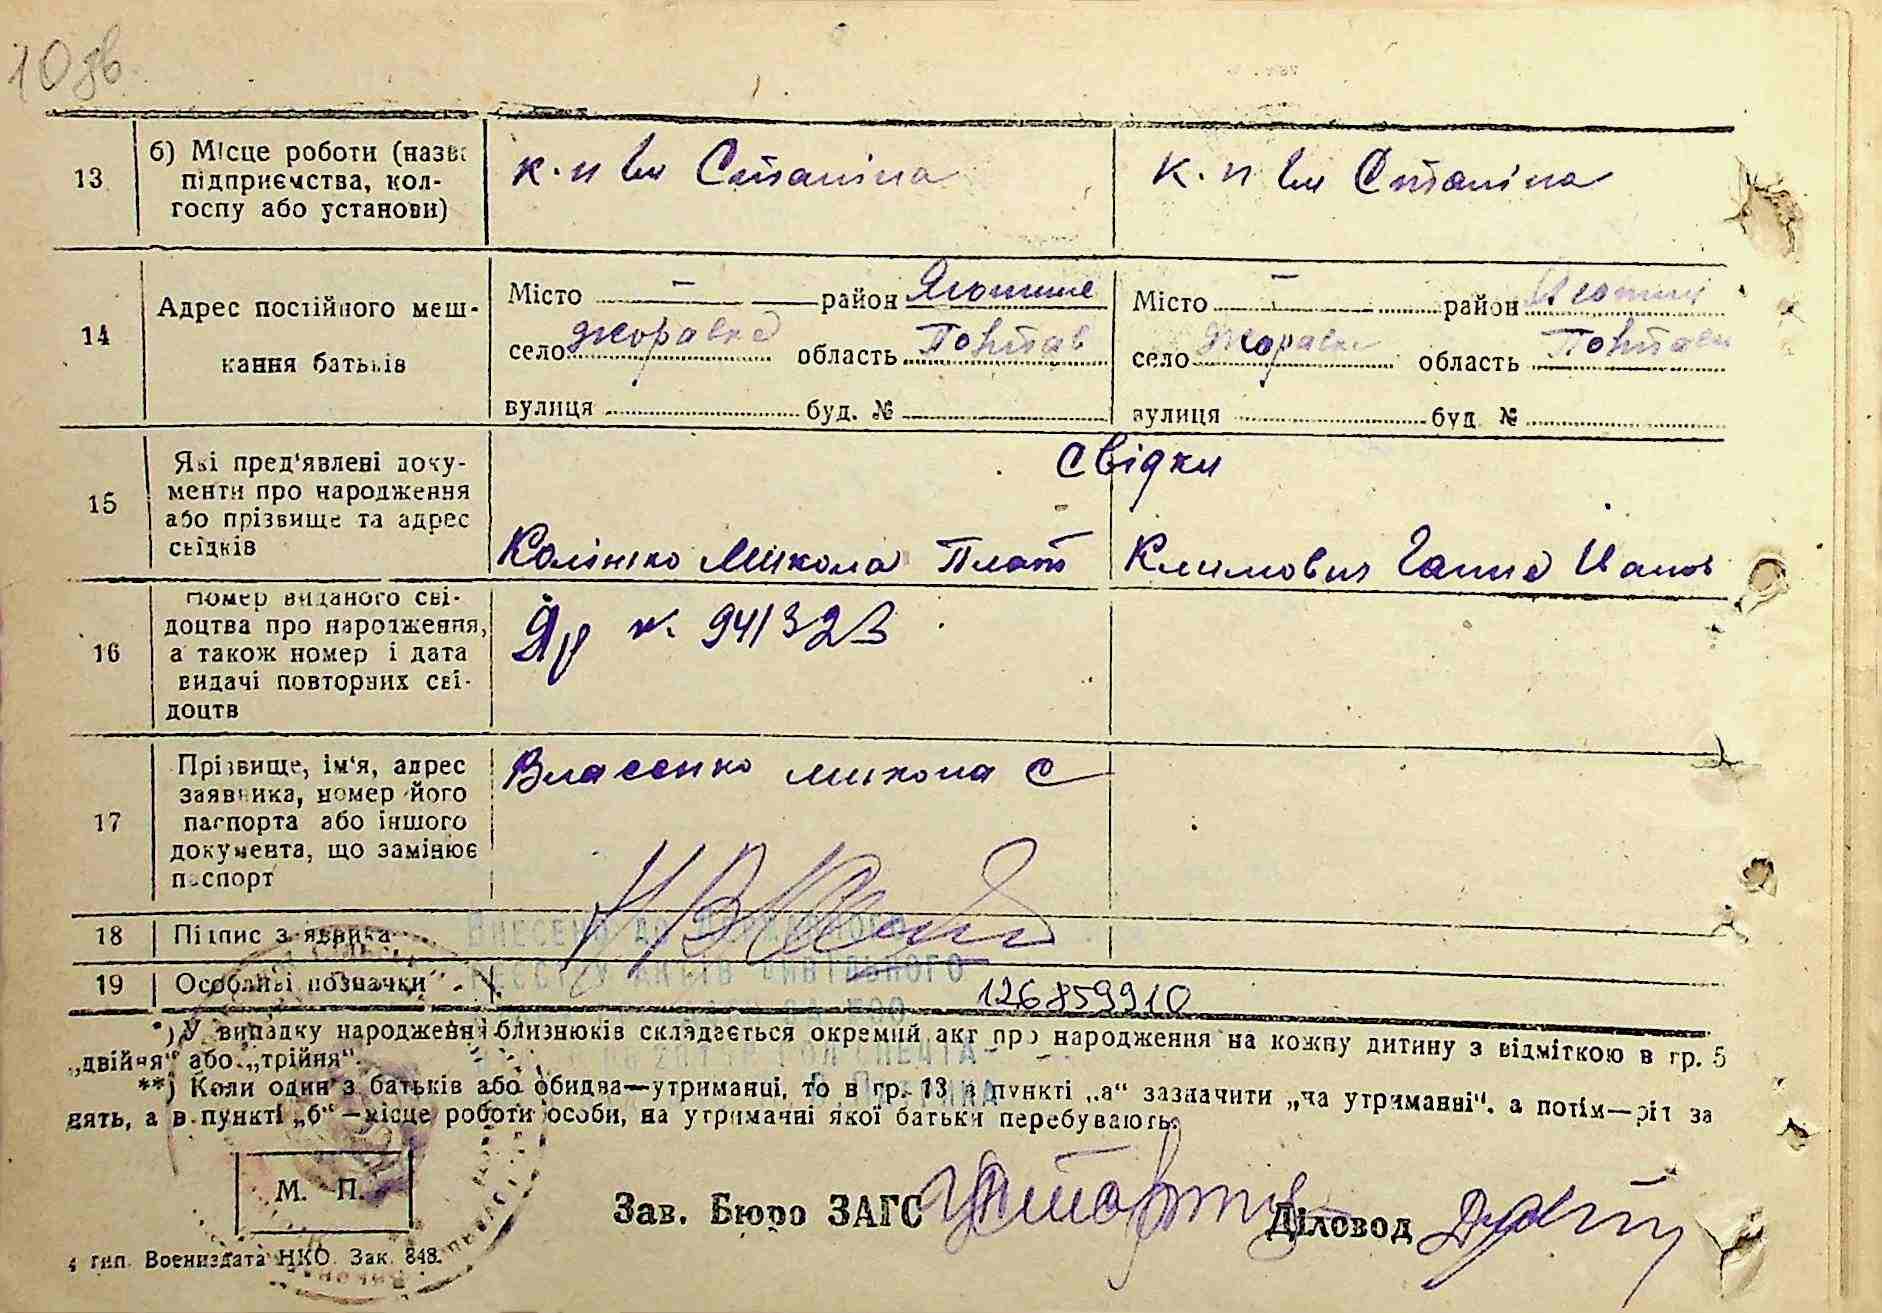 10 зв.
13
б) Місце роботи (назва
підприємства, кол-
госпу або установи)
к.п ім Сталіна
к.п ім Сталіна
14
Адрес постійного меш-
кання батьків
Місто — район Яготине
село Жоравка область Полтав
вулиця буд. №
Місто — район Яготин
село Жоравка область Полтавс
вулиця буд №
15
Які пред'явлені доку-
менти про народження
або прізвище та адрес
свідків
свідки
Калініко Микола Плат
Климович Ганна Іванов
16
Номер виданого сві-
доцтва про народження,
а також номер і дата
видачі повторних сві-
доцтв
№ 941323
17
Прізвище, ім'я, адрес
заявника, номер його
паспорта або іншого
документа, що замінює
паспорт
Власенко микола С
18
Підпис заявника
Внесено до Державного
19
Особливі позначки
реєстру актів цивільного
126859910
*) У випадку народження близнюків складається окремий акт про народження на кожну дитину з відміткою в гр. 5
„двійня" або „трійня".
**) Коли один з батьків або обидва—утриманці, то в гр. 13 в пункті „а" зазначити „на утриманні", а потім—рід за
нять, а в пункті „б"—місце роботи особи, на утриманні якої батьки перебувають.
М. П.
Зав. Бюро ЗАГС
Діловод
4 тип. Воениздата НКО. Зак. 848.